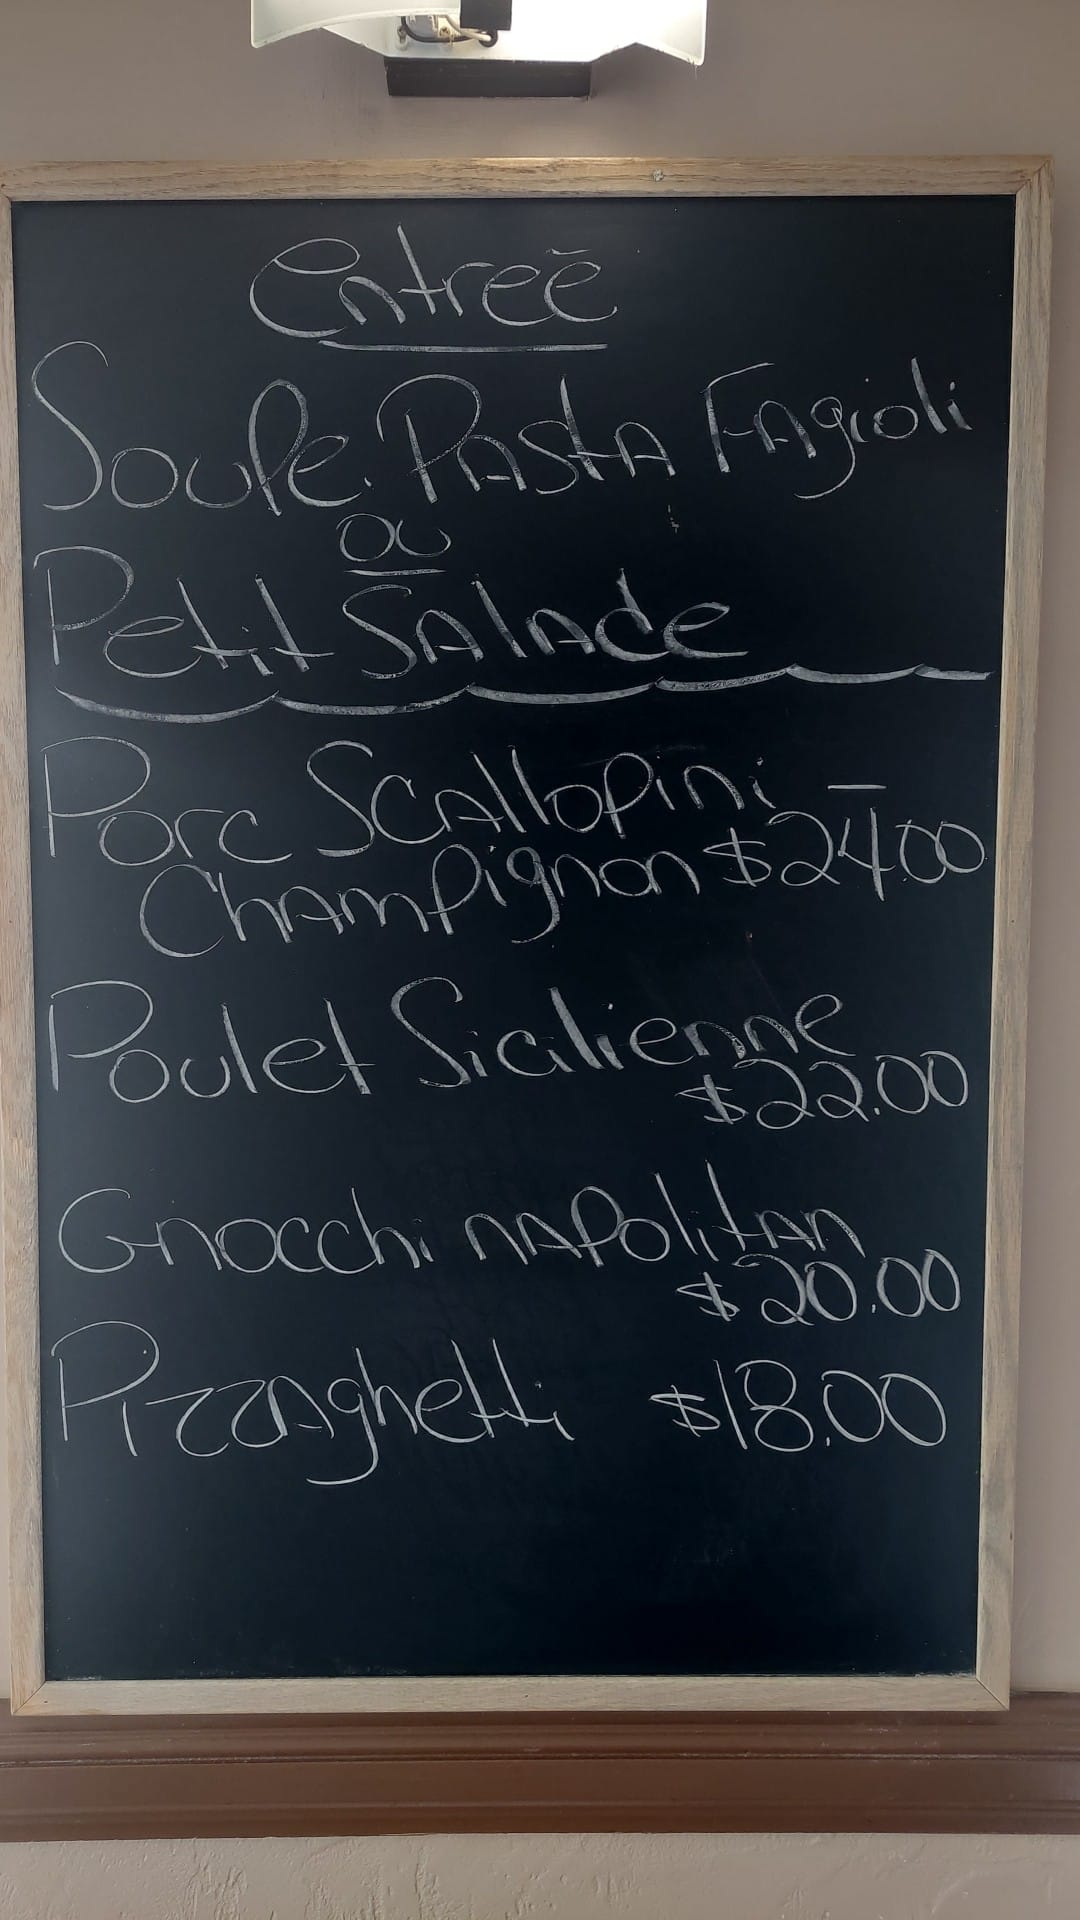 Entreē
Soupe. Pasta Fagioli
ou
Petit Salade
Porc Scallopini -
Champignon $24.00
Poulet Sicilienne
$22.00
Gnocchi napolitan
$20.00
Pizzaghetti $18.00